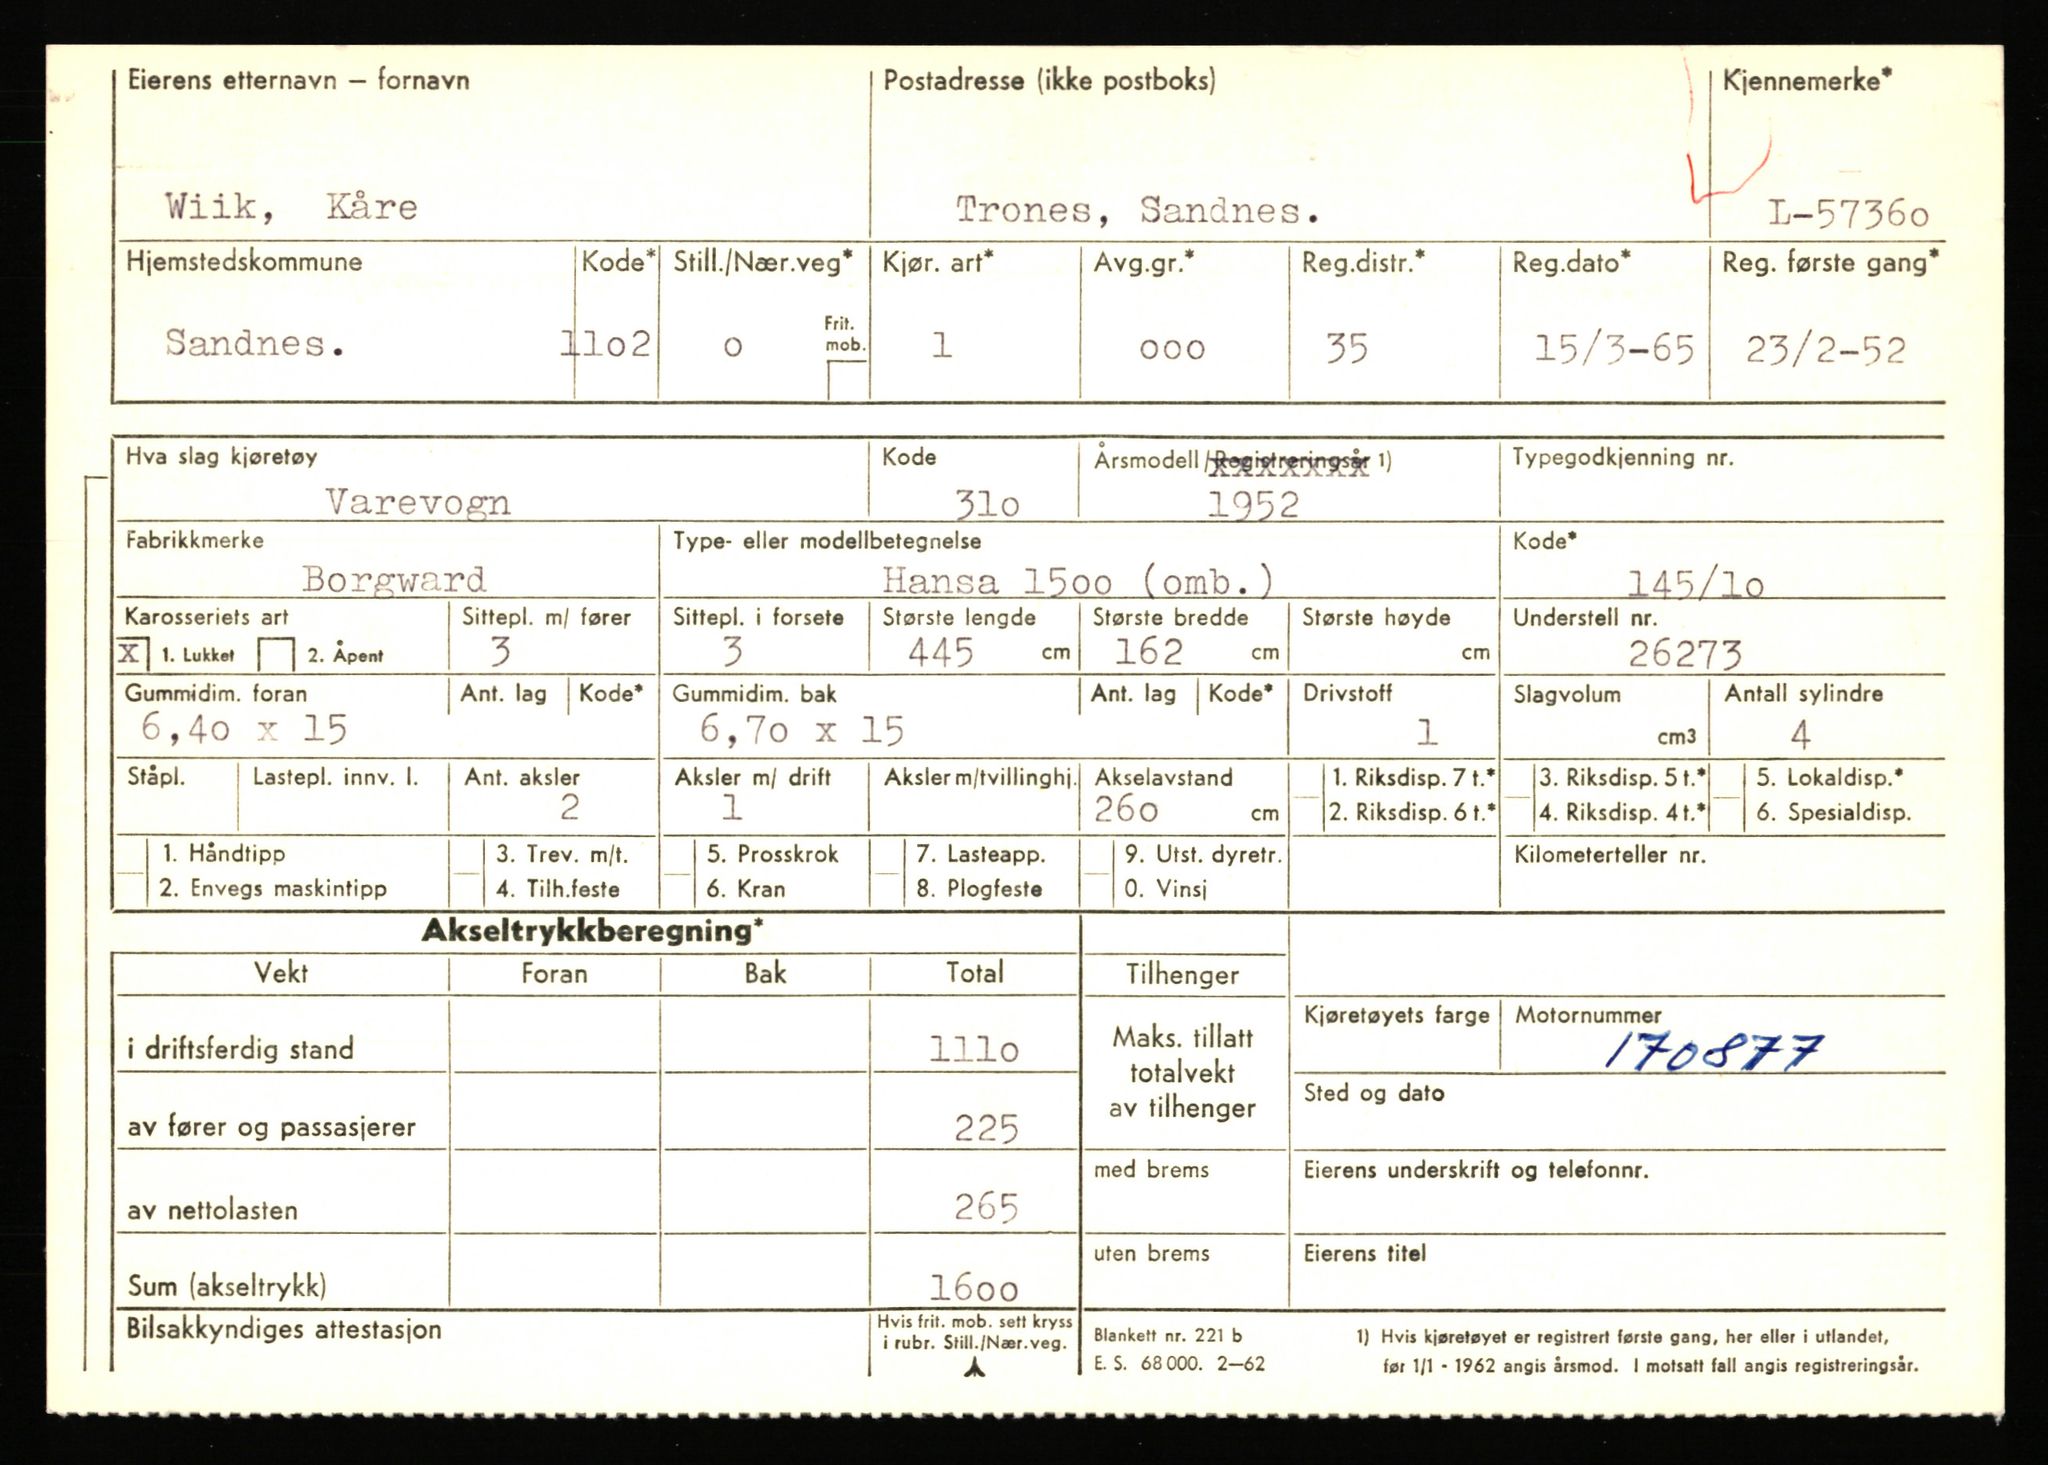 Eierens etternavn – fornavn Postadresse (ikke postboks) Kjennemerke*
Wiik, Kåre Trones, Sandnes. L-5736o
Hjemstedskommune Kode* Still./Nær.veg* Kjør. art* Avg.gr.* Reg.distr.* Reg.dato* Reg. første gang*
Frit.
mob.
Sandnes. 11o2 o 1 ooo 35 15/3-65 23/2-52
Hva slag kjøretøy Kode Årsmodell/Registreringsår 1) Typegodkjenning nr.
Varevogn 31o 1952
Fabrikkmerke Type- eller modellbetegnelse Kode*
Borgward Hansa 15oo (omb.) 145/1o
Karosseriets art Sittepl. m/ fører Sittepl. i forsete Største lengde Største bredde Største høyde Understell nr.
X 1. Lukket 2. Åpent 3 3 445 cm 162 cm cm 26273
Gummidim. foran Ant. lag Kode* Gummidim. bak Ant. lag Kode* Drivstoff Slagvolum Antall sylindre
6,4o x 15 6,7o x 15 1 cm3 4
Ståpl. Lastepl. innv. l. Ant. aksler Aksler m/ drift Aksler m/tvillinghj. Akselavstand 1. Riksdisp. 7 t.* 3. Riksdisp. 5 t.* 5. Lokaldisp.*
2 1 26o cm 2. Riksdisp. 6 t.* 4. Riksdisp. 4 t.* 6. Spesialdisp.
1. Håndtipp 3. Trev. m/t. 5. Prosskrok 7. Lasteapp. 9. Utst. dyretr. Kilometerteller nr.
2. Envegs maskintipp 4. Tilh.feste 6. Kran 8. Plogfeste 0. Vinsj
Akseltrykkberegning*
Vekt Foran Bak Total Tilhenger
Kjøretøyets farge Motornummer
i driftsferdig stand 111o Maks. tillatt 170877
totalvekt
av tilhenger Sted og dato
av fører og passasjerer 225
med brems Eierens underskrift og telefonnr.
av nettolasten 265
uten brems Eierens titel
Sum (akseltrykk) 16oo
Bilsakkyndiges attestasjon Hvis frit. mob. sett kryss
i rubr. Still./Nær.veg.
Blankett nr. 221 b
E. S. 68 000. 2–62
1) Hvis kjøretøyet er registrert første gang, her eller i utlandet,
før 1/1 - 1962 angis årsmod. I motsatt fall angis registreringsår.